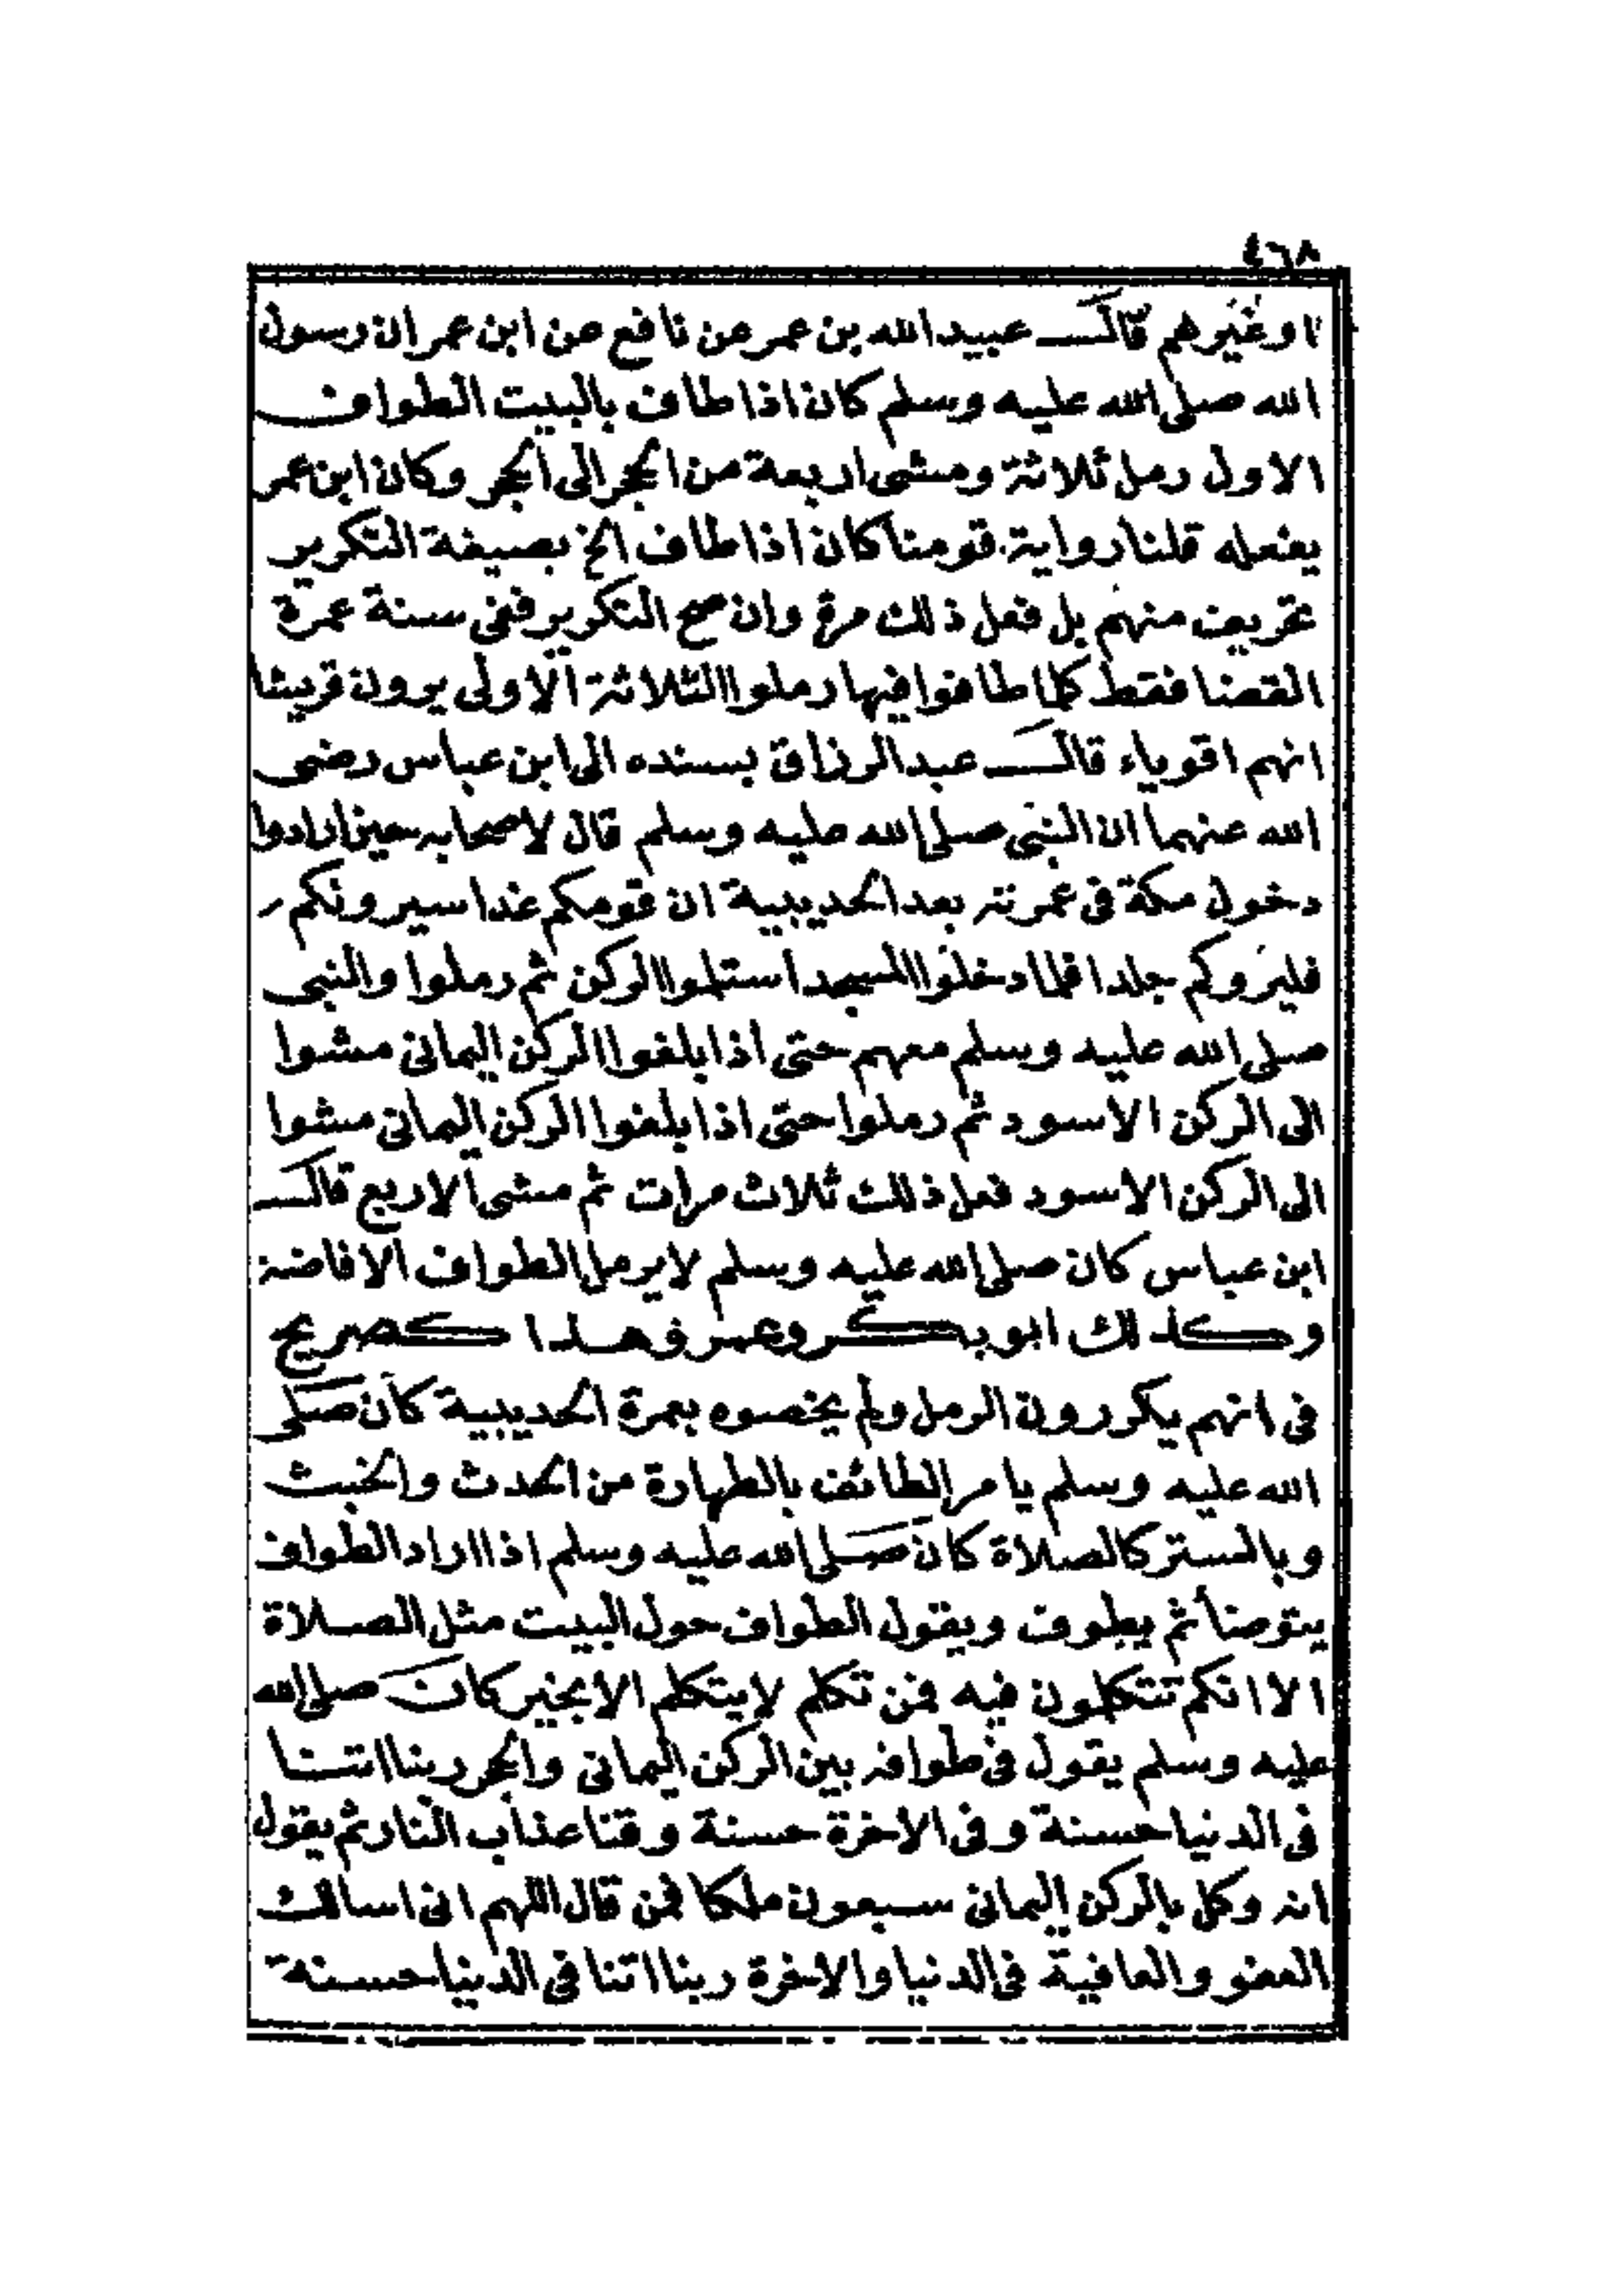 ٤٦٨
او غيرهم قال عبيد الله بن عمر عن نافع عن ابن عمر ان رسول
الله صلى الله عليه وسلم كان اذا طاف بالبيت الطواف
الاول رمل ثلاثة ومشى اربعة من الحجر الى الحجر وكان ابن عمر
يفعله قلنا رواية قومنا كان اذا طاف الخ بصيغة التكرير
تحريف منهم بل فعل ذلك مرة وان صح التكرير ففى سنة عمرة
القضا فقط كلما طافوا فيها رملوا الثلاثة الاولى يرون قريشا
انهم اقوياء قال عبد الرزاق بسنده الى ابن عباس رضى
الله عنهما ان النبى صلى الله عليه وسلم قال لاصحابه حين ارادوا
دخول مكة فى عمرته بعد الحديبية ان قومكم غدا سيرونكم
فليروكم جلدا فلما دخلوا المسجد استلموا الركن ثم رملوا والنبى
صلى الله عليه وسلم معهم حتى اذا بلغوا الركن اليمانى مشوا
الى الركن الاسود ثم رملوا حتى اذا بلغوا الركن اليمانى مشوا
الى الركن الاسود فعل ذلك ثلاث مرات ثم مشى الاربع قال
ابن عباس كان صلى الله عليه وسلم لا يرمل الطواف الافاضة
وكذلك ابو بكر وعمر وهذا كصريح
فى انهم يكررون الرمل ولم يخصوه بعمرة الحديبية كان صلى
الله عليه وسلم يامر الطائف بالطهارة من الحدث والخبث
وبالستر كالصلاة كان صلى الله عليه وسلم اذا اراد الطواف
يتوضأ ثم يطوف ويقول الطواف حول البيت مثل الصلاة
الا انكم تتكلمون فيه فمن تكلم لا يتكلم الا بخير كان صلى الله
عليه وسلم يقول فى طوافه بين الركن اليمانى والحجر ربنا اتنا
فى الدنيا حسنة وفى الاخرة حسنة وقنا عذاب النار ثم يقول
انه وكل بالركن اليمانى سبعون ملكا فمن قال اللهم انى اسالك
العفو والعافية فى الدنيا والاخرة ربنا اتنا فى الدنيا حسنة